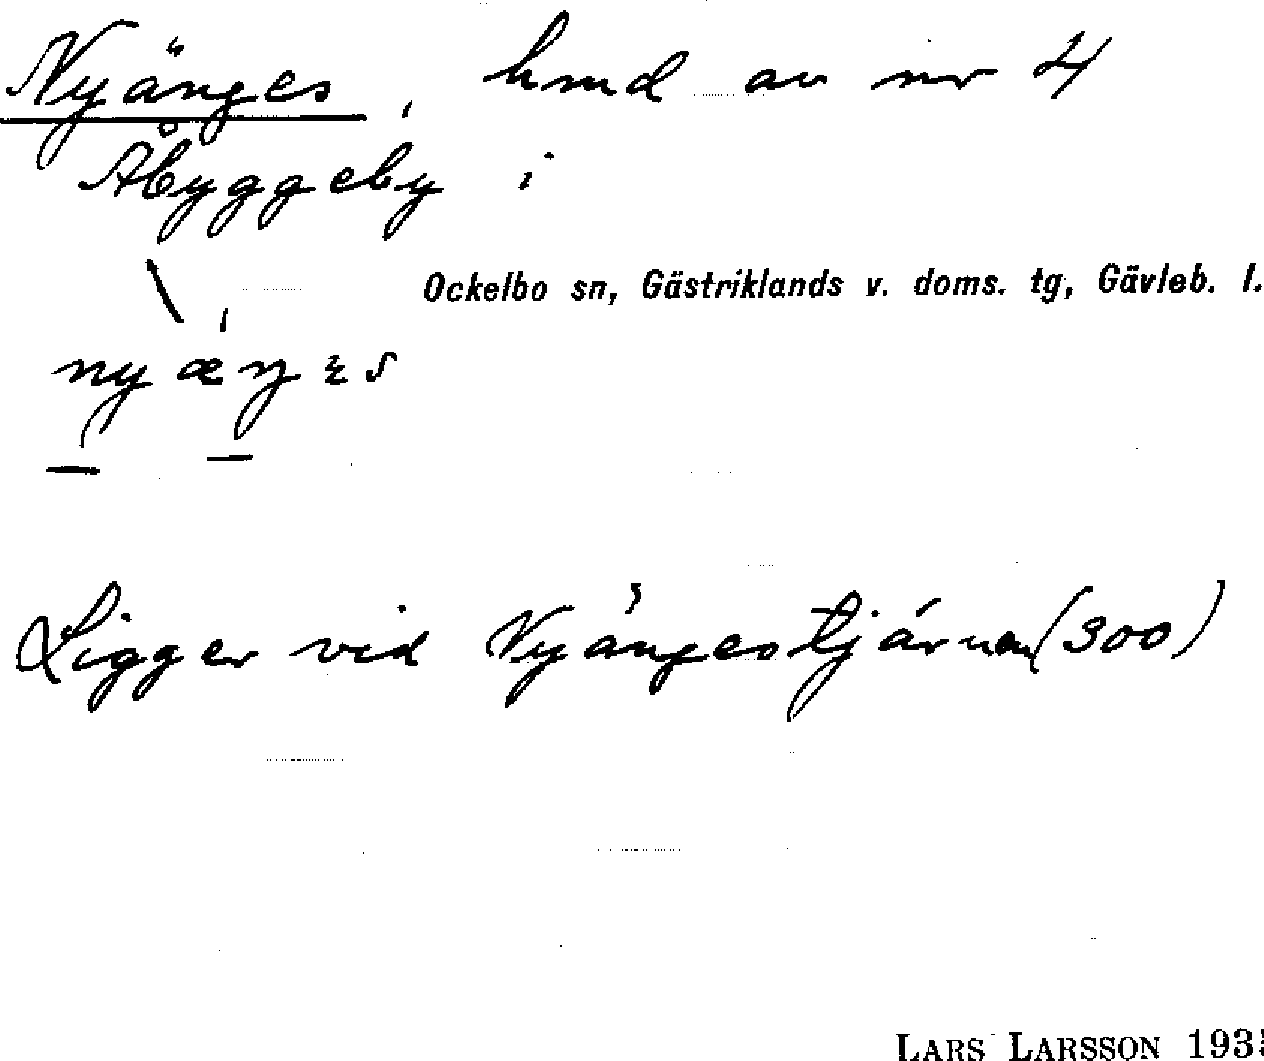 Nyänges, hmd av nr 4
Åbyggeby i
Ockelbo sn, Gästriklands v. doms. tg, Gävleb. l.
Ligger vid Nyängestjärnen (300)
LARS LARSSON 193